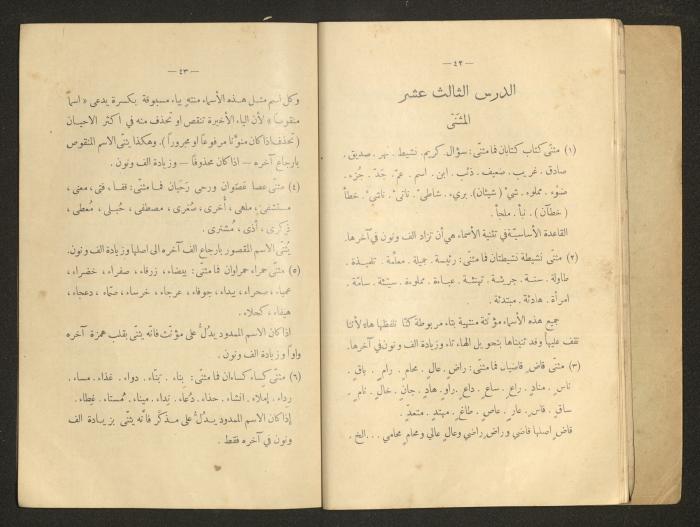 — ٤٢ —
الدرس الثالث عشر
المثنّى
(١) مثنّى كتاب كتابان فما مثنّى: سؤال. كريم. نشيط. نهر. صديق.
صادق. غريب. ضعيف. ذئب. ابن. اسم. عمّ. جَدّ. جُزء.
ضَوْء. مملوء. شيْ (شيئان). بريء. شاطئ. ناشئ. خطأ
(خطآن). نبأ. ملجأ.
القاعدة الأساسيّة في تثنية الأسماء هي أن تزاد الف ونون في آخرها.
(٢) مثنّى نشيطة نشيطتان فما مثنّى: رئيسة. جميلة. معلّمة. تلميذة.
طاولة. سنة. جريئة. تهنئة. عباءة. مملوءة. سيّئة. سامّة.
امرأة. هادئة. مبتدئة.
جميع هذه الأسماء مؤنّثة منتهية بتاء مربوطة كنّا نلفظها هاء لأننا
نقف عليها وقد ثنيناها بتحويل الهاء تاء وزيادة الف ونون في آخرها.
(٣) مثنّى قاضٍ قاضيان فما مثنّى: راضٍ. عالٍ. محامٍ. رامٍ. باقٍ.
ناسٍ. منادٍ. راعٍ. ساعٍ. داعٍ. راوٍ. هادٍ. جانٍ. خالٍ. نامٍ.
ساقٍ. قاسٍ. عارٍ. عاصٍ. طاغٍ. مهتدٍ. متعدٍّ.
قاضٍ اصلها قاضي وراضٍ راضي وعالٍ عالي ومحامٍ محامي ... الخ.
— ٤٣ —
وكل اسم مثل هذه الأسماء منتهٍ بياء مسبوقة بكسرة يدعى «اسماً
منقوصاً» لأن الياء الأخيرة تنقص او تحذف منه في اكثر الاحيان
(تحذف اذا كان منوَّناً مرفوعاً او مجروراً). وهكذا يثنّى الاسم المنقوص
بارجاع آخره — اذا كان محذوفاً — وزيادة الف ونون.
(٤) مثنّى عصا عَصَوان ورحى رَحَيان فما مثنّى: قفا، فتى، معنى،
مستشفى، ملهى، أُخرى، صُغرى، مصطفى، حُبلى، مُعطى،
ذِكرى، أذى، مُشترى.
يُثنّى الاسم المقصور بارجاع الف آخره الى اصلها وزيادة الف ونون.
(٥) مثنّى حمراء حمراوان فما مثنّى: بيضاء، زرقاء، صفراء، خضراء،
عمياء، صحراء، بيداء، جوفاء، عرجاء، خرساء، صمّاء، دعجاء،
هيفاء، كحلاء.
اذا كان الاسم الممدود يدُلُّ على مؤنّث فانّه يثنّى بقلب همزة آخره
واواً وزيادة الف ونون.
(٦) مثنّى كساء كساءان فما مثنّى: بِناء. بَنّاء. دواء. غذاء. مساء.
رداء. إملاء. انشاء. حذاء. دُعاء. نداء. ميناء. مُستاء. غِطاء.
إذا كان الاسم الممدود يدُلُّ على مذكّر فانّه يثنّى بزيادة الف
ونون في آخره فقط.